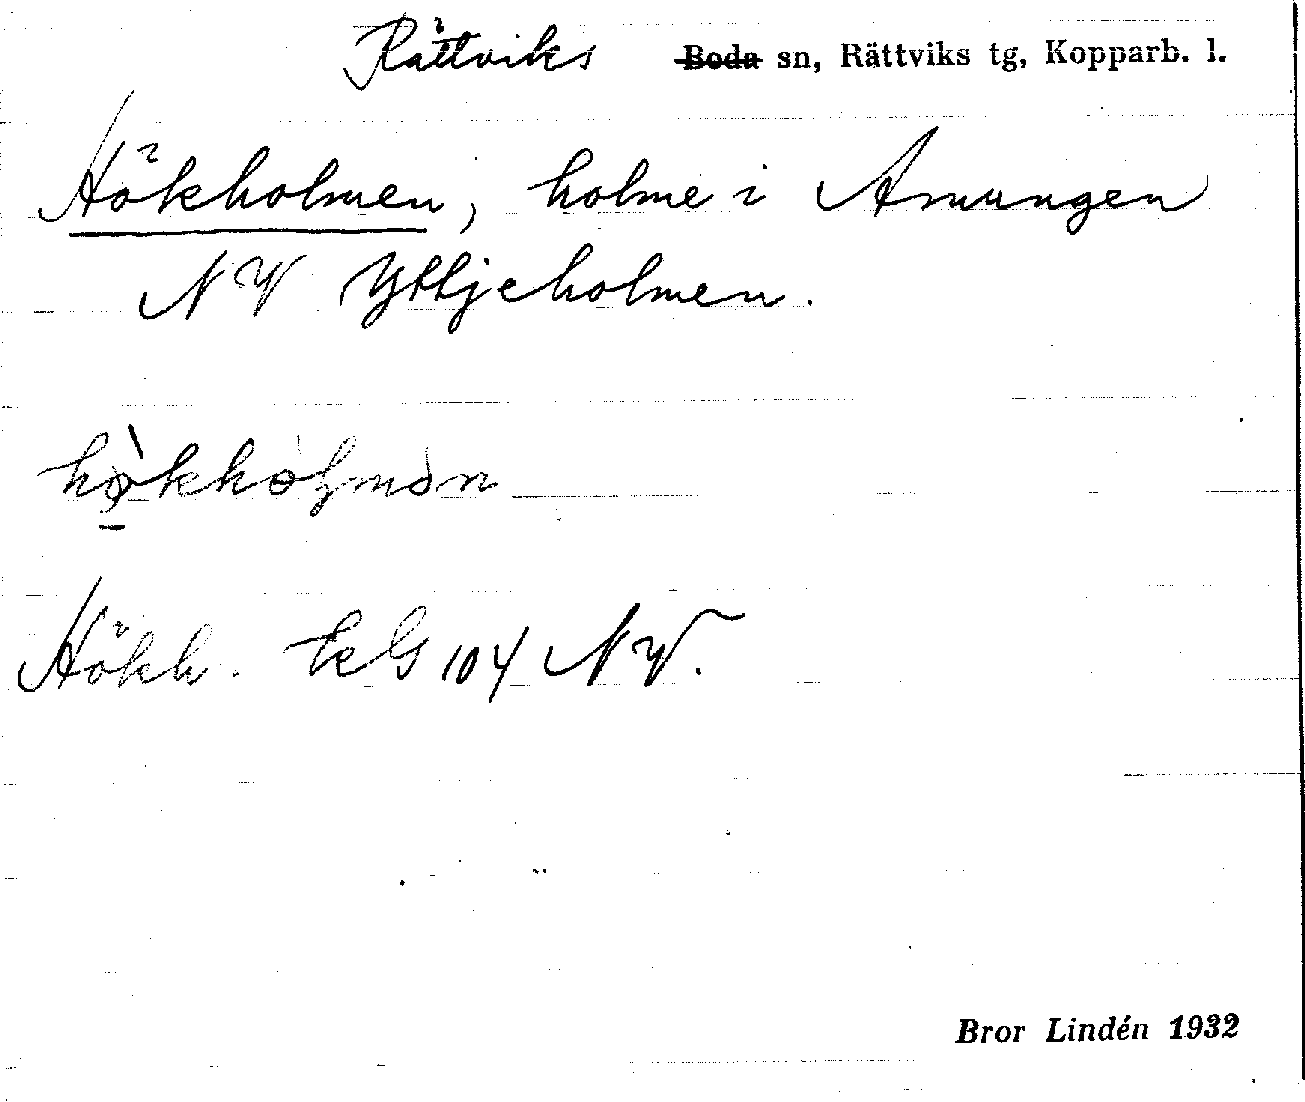 Rättviks ~~Boda~~ sn, Rättviks tg, Kopparb. l.
Hökholmen, holme i Amungen
NV Yttjeholmen.
Hökh. Ek G 104 NV.
Bror Lindén 1932